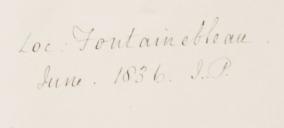 Loc: Fontainebleau.
June. 1836. J.P.